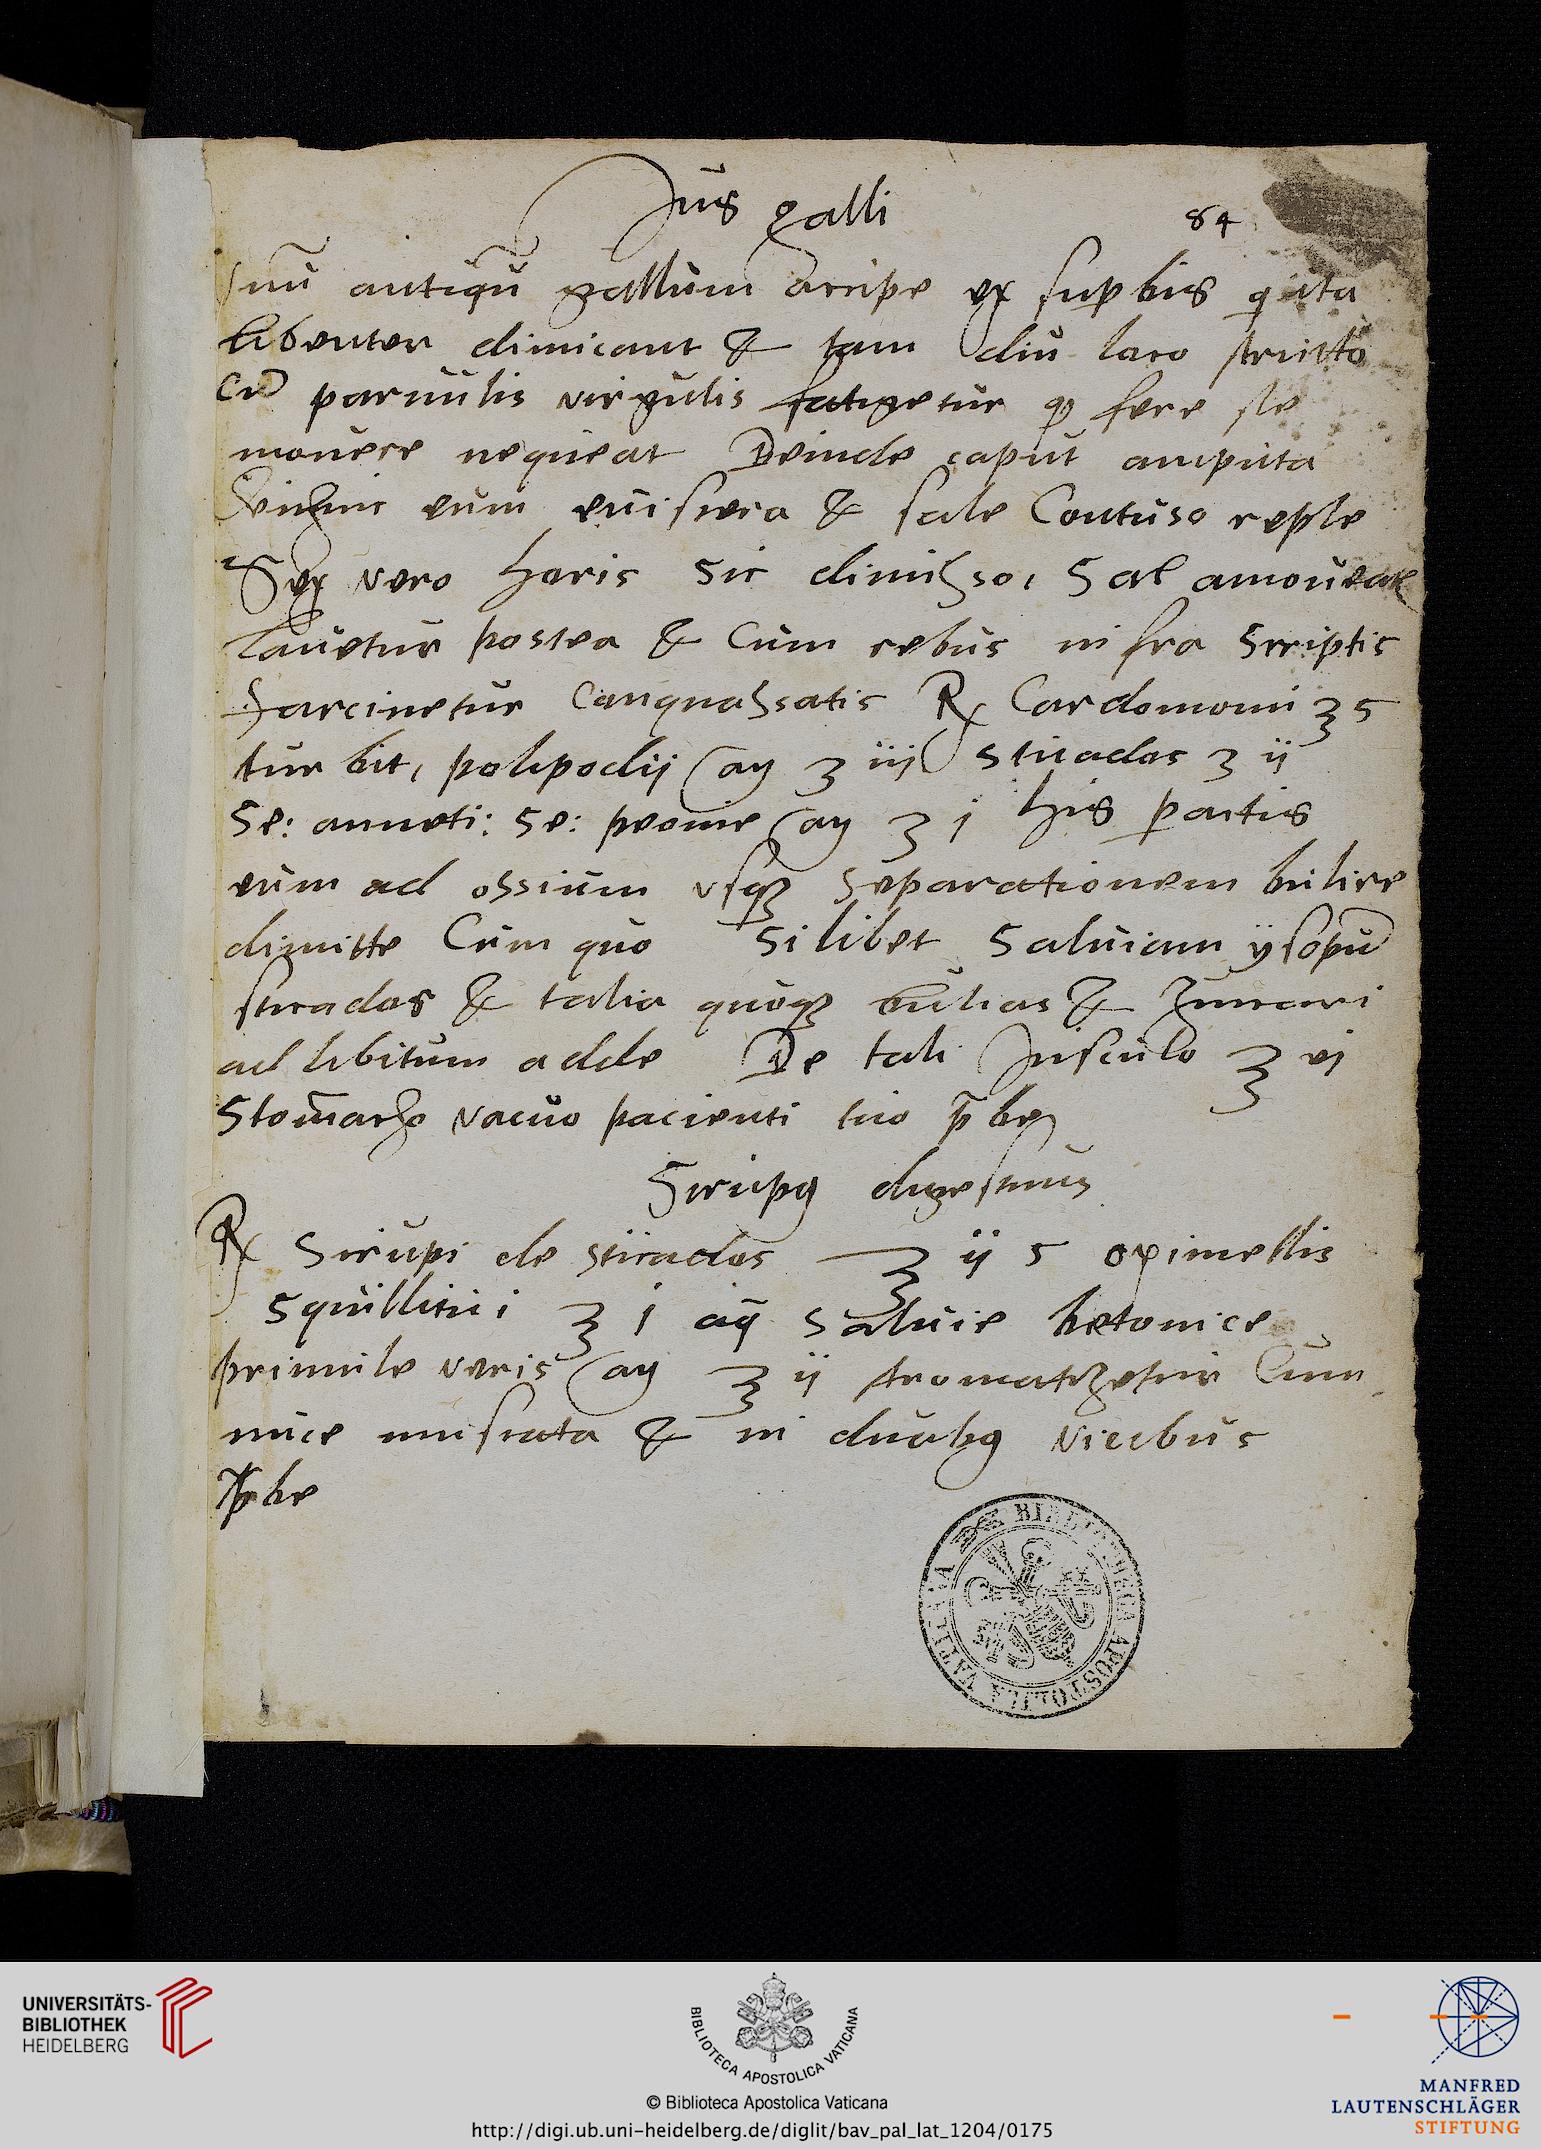 Jus galli
84
antiqũ gallum accipe ex supbis
libenter dimicant & tam diu laco stricto
cũ paruulis virgulis fatigetur ꝙ fere se
mouere nequeat Deinde caput amputa
eum euiscera & sale Contuso reple
Sex vero horis sic dimisso, Sal amoueatr
lauetur postea & Cum rebus infra scriptis
farcinetur Conquassatis ℞ Cardomomi ʒ 5
turbit, polipodij añ ʒ iij sticados ʒ ij
se: anneti: se: peonie añ ʒ j his pactis
eum ad ossium vsqꝫ separationem bulire
dimitte Cum quo si libet saluiam ysopũ
sticados & talia quoqꝫ bulias & Zuccari
ad libitum adde De tali Jusculo ℥ vj
Stomacho vacuo pacienti tuo p̄be
Sirupꝰ digestiuus
℞ Sirupi de sticados ℥ ij 5 oximellis
squillitici ℥ j aq̄ saluie betonice
primule veris añ ℥ ij Aromatizetur Cum
nuce muscata & in duabꝰ vicibus
p̄be
BIBLIOTHECA APOSTOLICA VATICANA
UNIVERSITÄTS-
BIBLIOTHEK
HEIDELBERG
BIBLIOTECA APOSTOLICA VATICANA
© Biblioteca Apostolica Vaticana
http://digi.ub.uni-heidelberg.de/diglit/bav_pal_lat_1204/0175
MANFRED
LAUTENSCHLÄGER
STIFTUNG